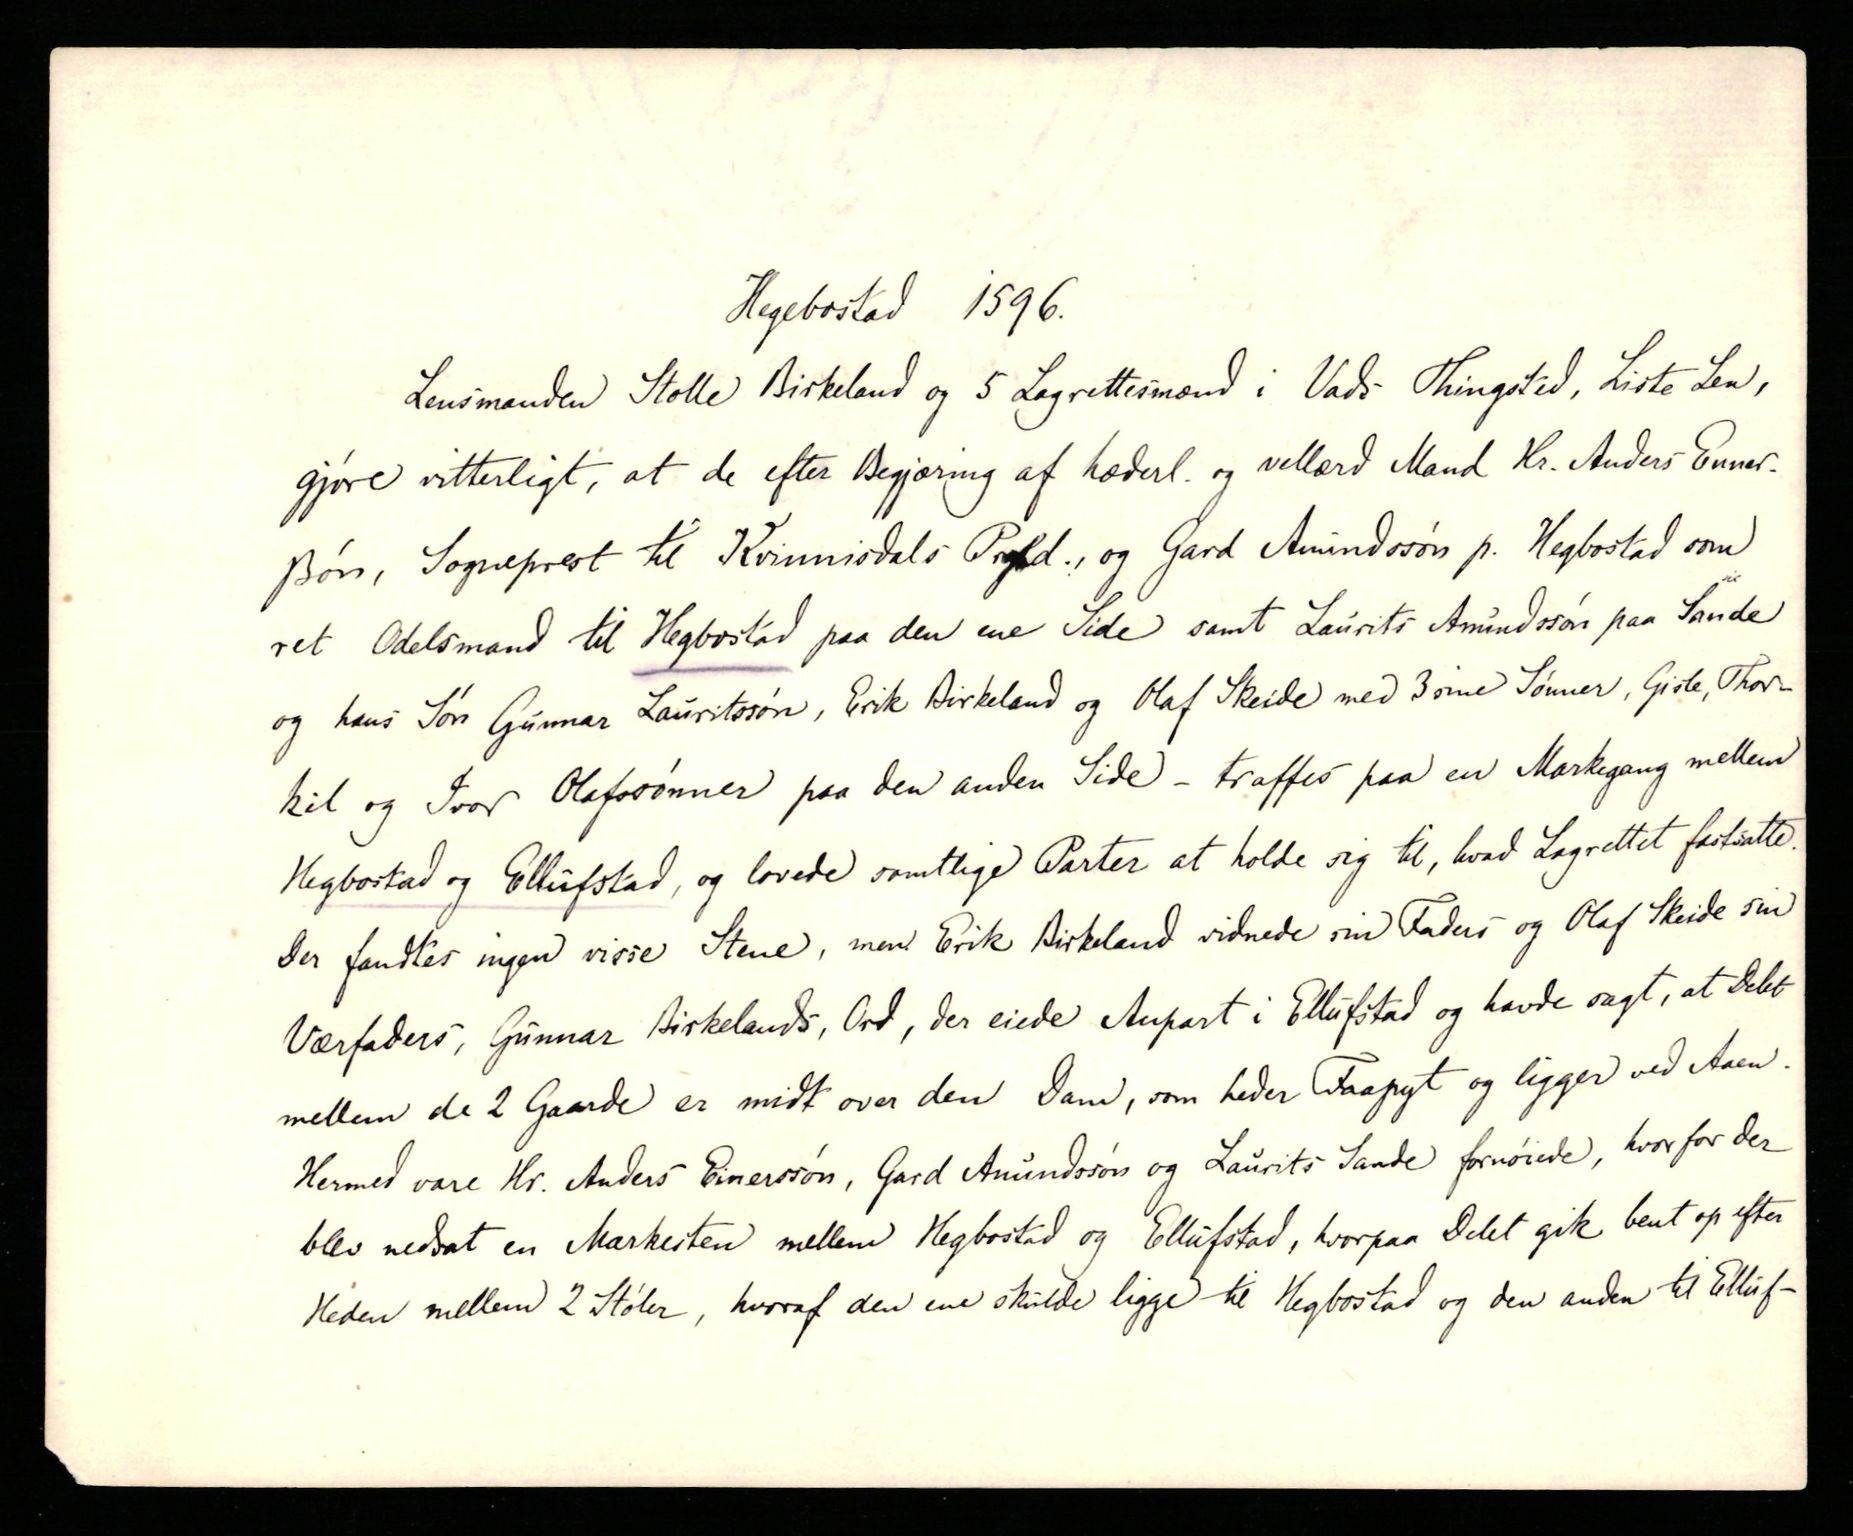 Hegebostad 1596.
Lensmanden Stolle Birkeland og 5 Lagrettesmænd i Vads Thingsted, Liste Len,
gjöre vitterligt, at de efter Begjæring af hæderl. og vellærd Mand Hr. Anders Enner-
ßön, Sogneprest til Kvinnisdals Prgld., og Gard Amundssön p. Hegbostad som
ret Odelsmand til Hegbostad paa den ene Side samt Laurits Amundssön paa Sande
og hans Sön Gunnar Lauritssön, Erik Birkeland og Olaf Skeide med 3 sine Sönner, Gisle, Thor-
kil og Ivor Olafssönner paa den anden Side - traffes paa en Markegang mellem
Hegbostad og Ellufstad, og lovede samtlige Parter at holde sig til, hvad Lagrettet fastsatte.
Der fandtes ingen visse Stene, men Erik Birkeland vidnede sin Faders og Olaf Skeide sin
Værfaders, Gunnar Birkelands, Ord, der eiede Anpart i Ellufstad og havde sagt, at Delet
mellem de 2 Gaarde er midt over den Dam, som heder Faapyt og ligger ved Aaen.
Hermed vare Hr. Anders Einerssön, Gard Amundssön og Laurits Sande fornöiede, hvorfor der
blev nedsat en Markesten mellem Hegbostad og Ellufstad, hvorpaa Delet gik bent op efter
Heden mellem 2 Stöler, hvoraf den ene skulde ligge til Hegbostad og den anden til Elluf-